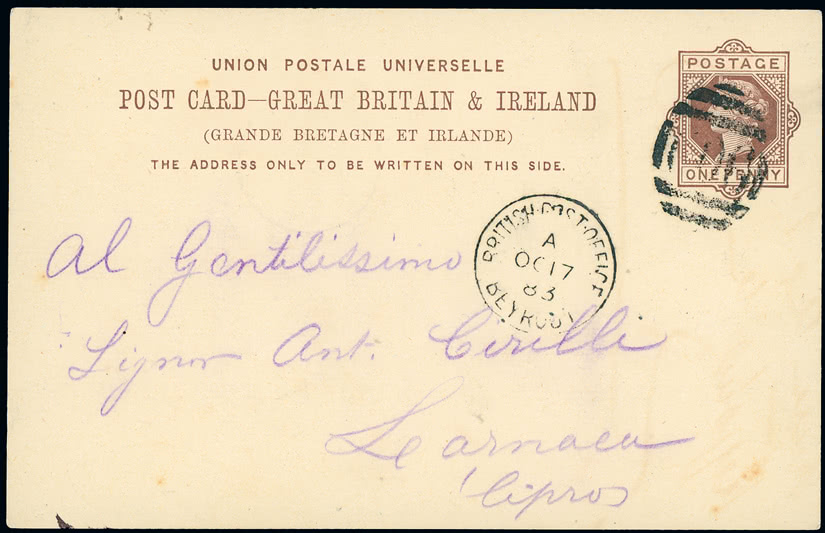 UNION POSTALE UNIVERSELLE
POST CARD—GREAT BRITAIN & IRELAND
(GRANDE BRETAGNE ET IRLANDE)
THE ADDRESS ONLY TO BE WRITTEN ON THIS SIDE.
POSTAGE
ONE PENNY
BRITISH·POST·OFFICE
A
OC 17
83
BEYROUT
Al Gentilissimo
Signor Ant. Cirilli
Larnaca
Cipros